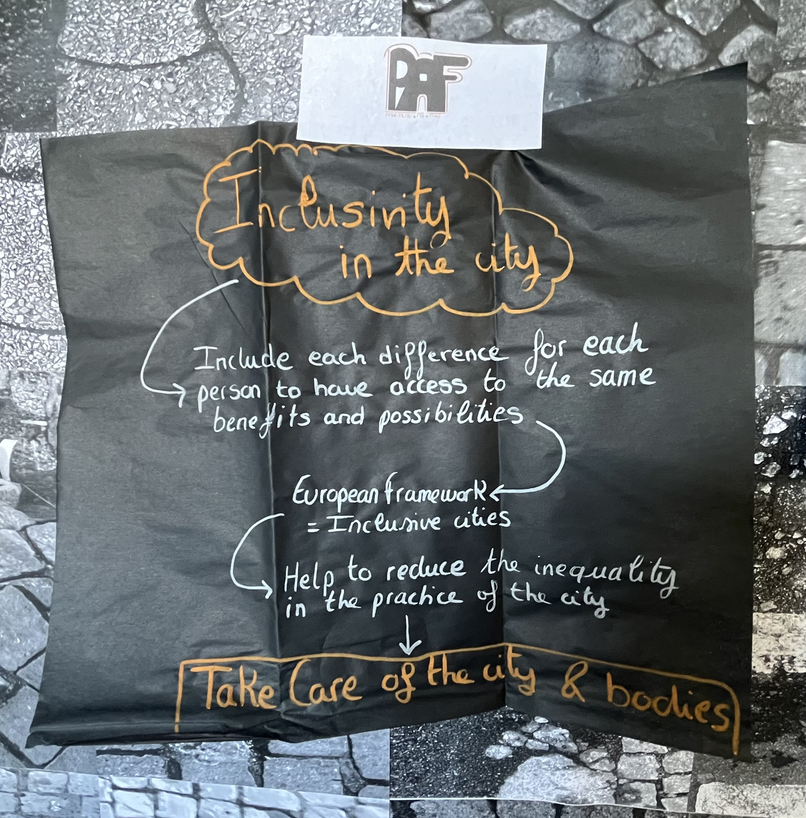 PAF
Inclusivity
in the city
Include each difference for each
person to have access to the same
benefits and possibilities
European framework
= Inclusive cities
Help to reduce the inequality
in the practice of the city
Take Care of the city & bodies